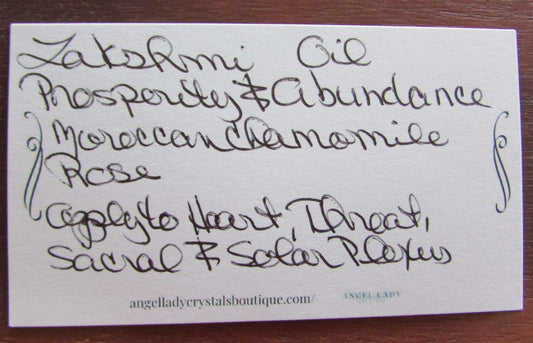 Lakshmi Oil
Prosperity & Abundance
Moroccan Chamomile
Rose
apply to Heart, Throat,
Sacral & Solar Plexus
angelladycrystalsboutique.com/ ANGEL LADY